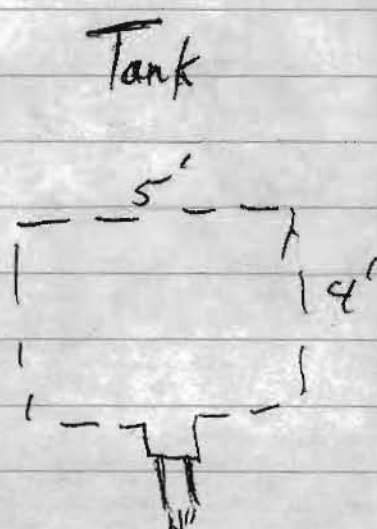 Tank
5'
4'